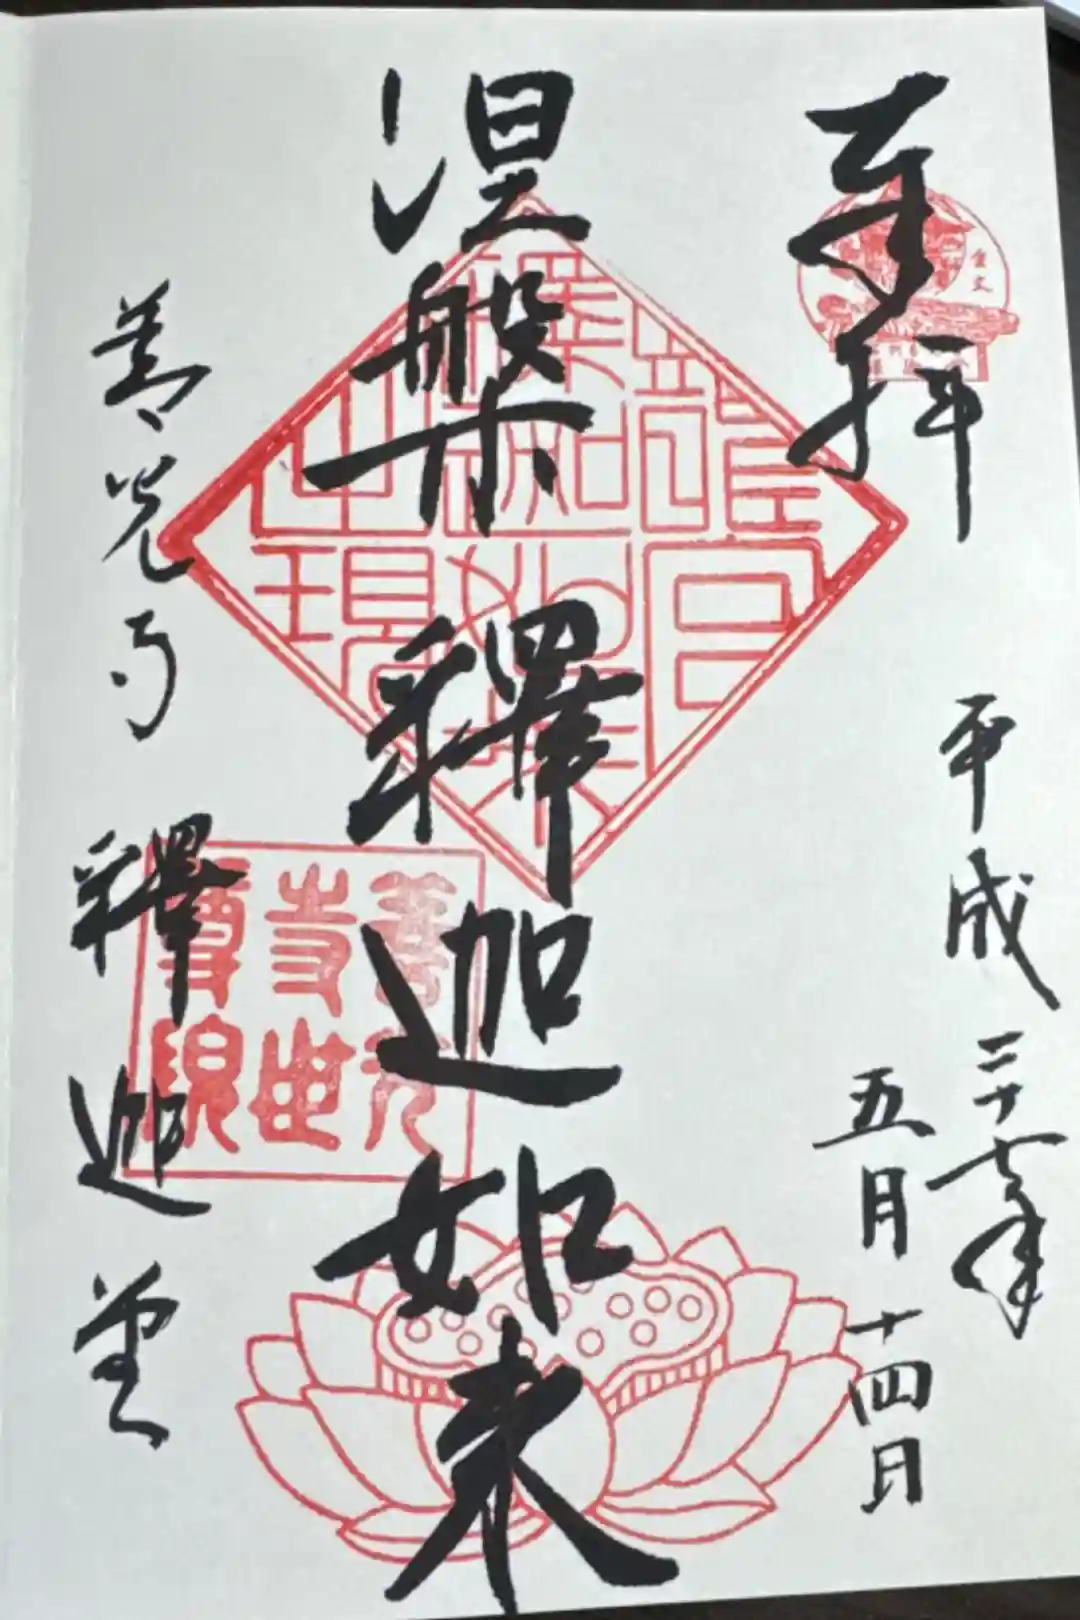 奉拝
平成二十七年
五月十四日
涅槃釋迦如来
善光寺 釋迦堂
善光
寺世
尊院